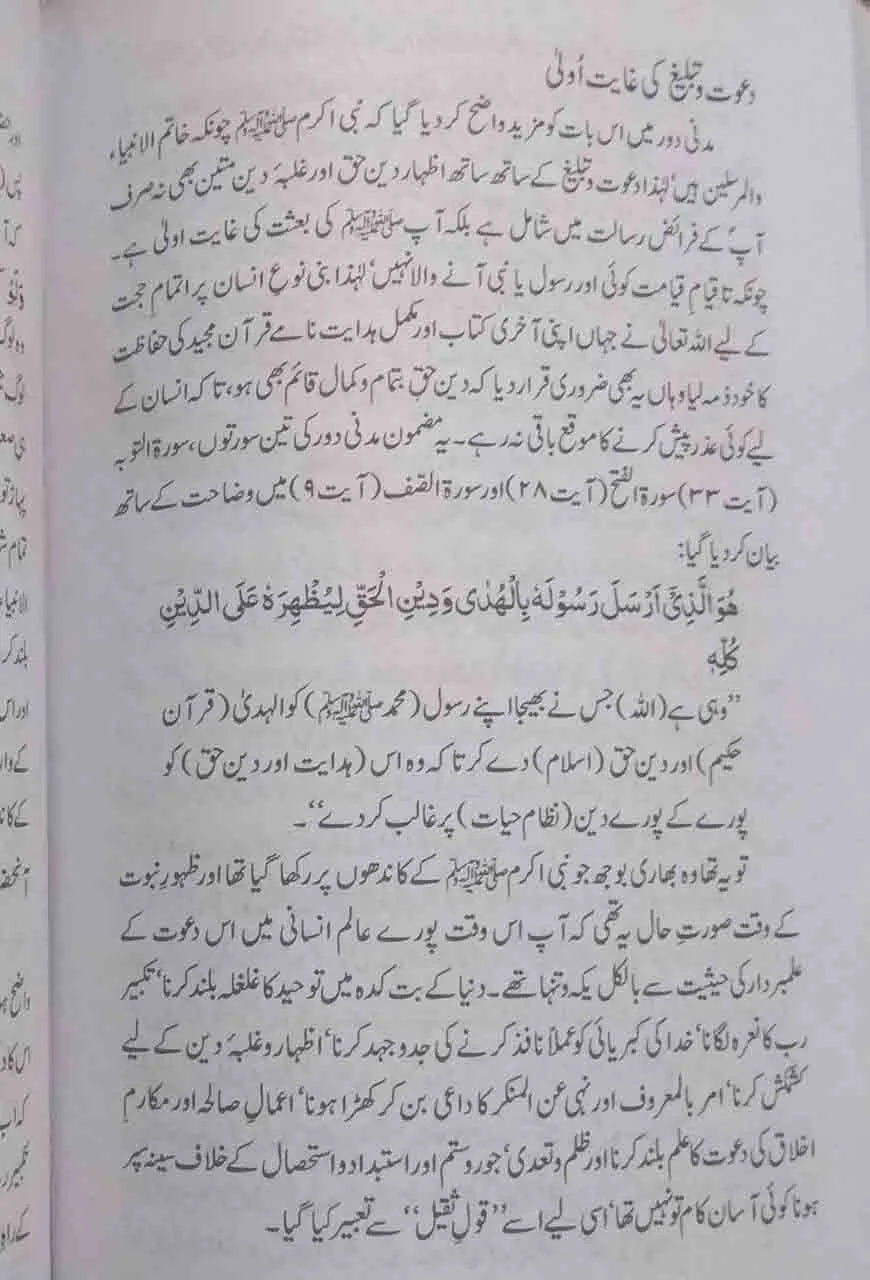 دعوت و تبلیغ کی غایت اُولیٰ
مدنی دور میں اس بات کو مزید واضح کر دیا گیا کہ نبی اکرم ﷺ چونکہ خاتم الانبیاء
والمرسلین ہیں‘ لہٰذا دعوت و تبلیغ کے ساتھ ساتھ اظہار دین حق اور غلبۂ دین متین بھی نہ صرف
آپؐ کے فرائض رسالت میں شامل ہے بلکہ آپ ﷺ کی بعثت کی غایت اولیٰ ہے۔
چونکہ تا قیامِ قیامت کوئی اور رسول یا نبی آنے والا نہیں‘ لہٰذا بنی نوعِ انسان پر اتمام حجت
کے لیے اللہ تعالیٰ نے جہاں اپنی آخری کتاب اور مکمل ہدایت نامے قرآن مجید کی حفاظت
کا خود ذمہ لیا وہاں یہ بھی ضروری قرار دیا کہ دین حق بتمام و کمال قائم بھی ہو، تاکہ انسان کے
لیے کوئی عذر پیش کرنے کا موقع باقی نہ رہے۔ یہ مضمون مدنی دور کی تین سورتوں، سورۃ التوبہ
(آیت ۳۳) سورۃ الفتح (آیت ۲۸) اور سورۃ الصف (آیت ۹) میں وضاحت کے ساتھ
بیان کر دیا گیا:
هُوَ الَّذِیْۤ اَرْسَلَ رَسُوْلَهٗ بِالْهُدٰی وَدِیْنِ الْحَقِّ لِیُظْهِرَهٗ عَلَی الدِّیْنِ
كُلِّهٖ
”وہی ہے (اللہ) جس نے بھیجا اپنے رسول (محمد ﷺ) کو الہدیٰ (قرآن
حکیم) اور دین حق (اسلام) دے کر تا کہ وہ اس (ہدایت اور دین حق) کو
پورے کے پورے دین (نظام حیات) پر غالب کر دے“۔
تو یہ تھا وہ بھاری بوجھ جو نبی اکرم ﷺ کے کاندھوں پر رکھا گیا تھا اور ظہورِ نبوت
کے وقت صورتِ حال یہ تھی کہ آپ اس وقت پورے عالم انسانی میں اس دعوت کے
علمبردار کی حیثیت سے بالکل یکہ و تنہا تھے۔ دنیا کے بت کدہ میں توحید کا غلغلہ بلند کرنا‘ تکبیر
رب کا نعرہ لگانا‘ خدا کی کبریائی کو عملاً نافذ کرنے کی جدوجہد کرنا‘ اظہار و غلبۂ دین کے لیے
کشمکش کرنا‘ امر بالمعروف اور نہی عن المنکر کا داعی بن کر کھڑا ہونا‘ اعمالِ صالحہ اور مکارمِ
اخلاق کی دعوت کا علم بلند کرنا اور ظلم و تعدی‘ جور و ستم اور استبداد و استحصال کے خلاف سینہ سپر
ہونا کوئی آسان کام تو نہیں تھا‘ اسی لیے اسے ”قولِ ثقیل“ سے تعبیر کیا گیا۔